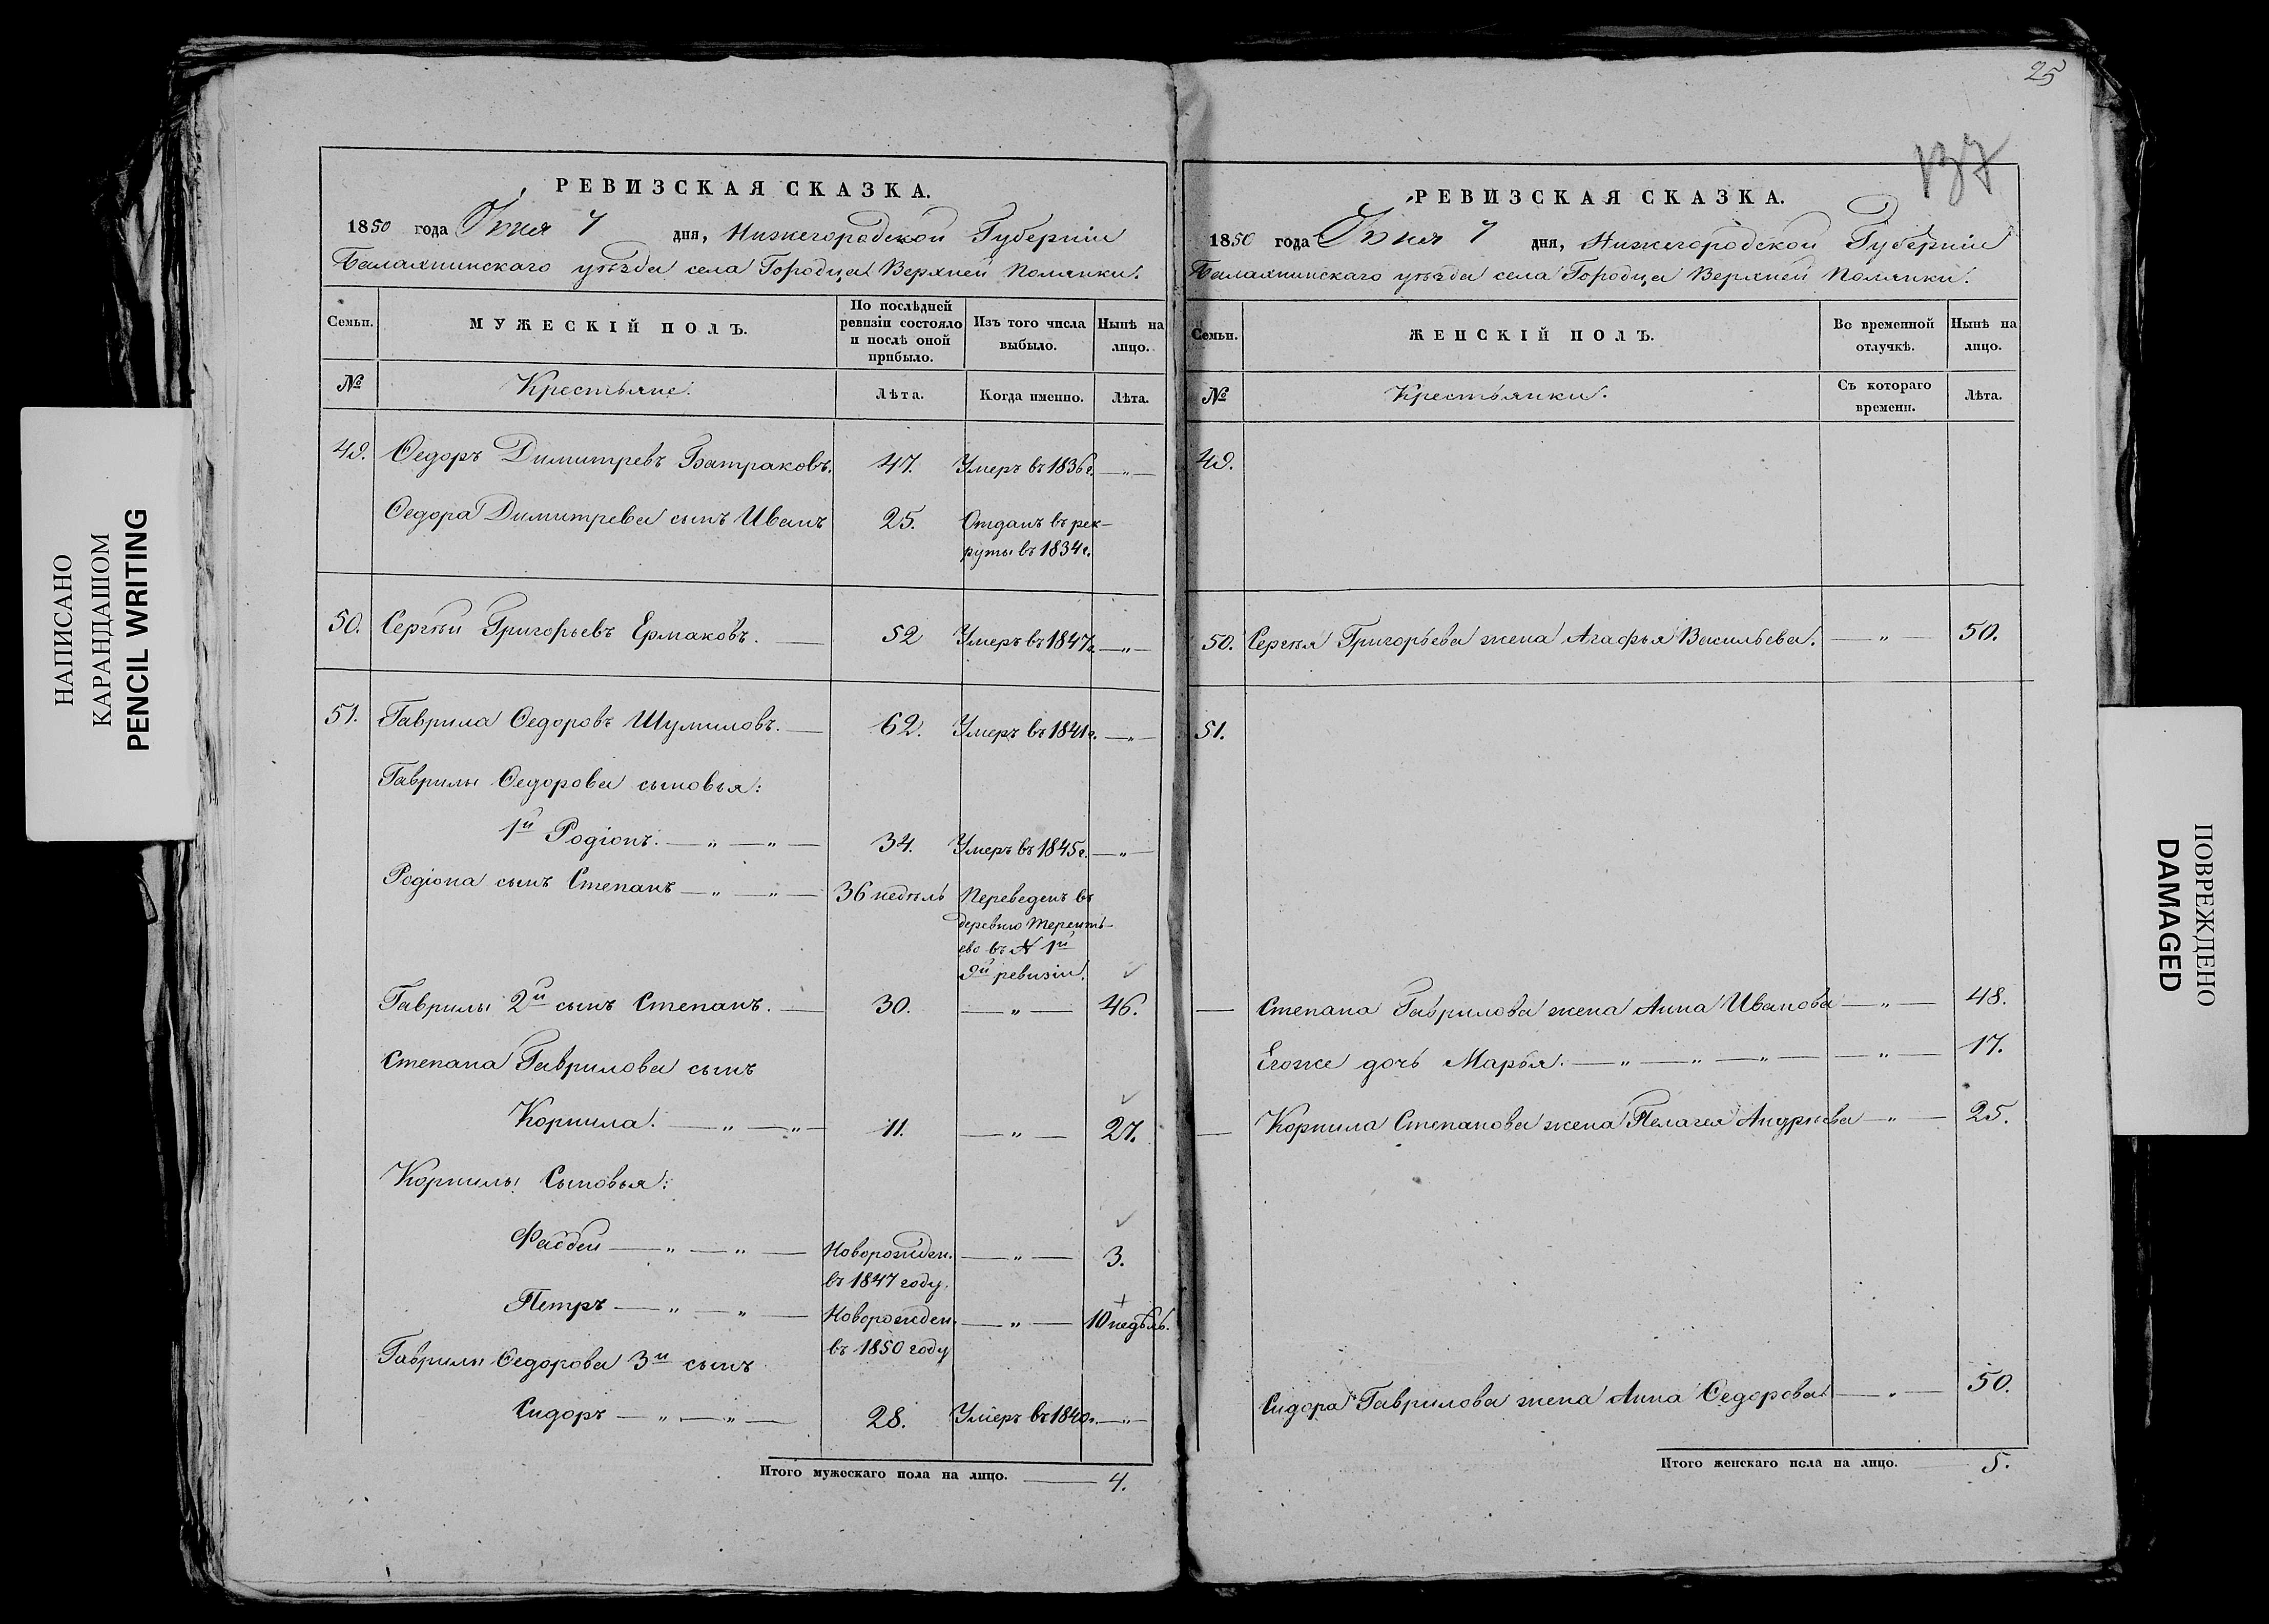 25
137
НАПИСАНО
КАРАНДАШОМ
PENCIL WRITING
РЕВИЗСКАЯ СКАЗКА.
1850 года Іюня 7 дня, Нижегородской Губерніи
Балахнинскаго уѣзда села Городца Верхней Полянки.
Семьи. МУЖЕСКІЙ ПОЛЪ. По послѣдней ревизіи состояло и послѣ оной прибыло. Изъ того числа выбыло. Нынѣ на лицо.
№ Крестьяне. Лѣта. Когда именно. Лѣта.
49. Ѳедоръ Димитревъ Батраковъ. 47. Умеръ въ 1836г. — „ —
Ѳедора Димитрева сынъ Иванъ 25. Отданъ въ рек-
руты въ 1834г.
50. Сергѣй Григорьевъ Ермаковъ. — 52 Умеръ въ 1847г. — „ —
51. Гаврила Ѳедоровъ Шумиловъ. — 62. Умеръ въ 1841г. — „ —
Гаврилы Ѳедорова сыновья:
1й Родіонъ. — „ — „ — 34. Умеръ въ 1845г. — „ —
Родіона сынъ Степанъ — „ — „ — 36 недѣль Переведенъ въ
деревню Терентъ-
ево въ № 1й
9й ревизіи.
Гаврилы 2й сынъ Степанъ. — 30. — „ — 46.
Степана Гаврилова сынъ
Корнила. — „ — „ — 11. — „ — 27.
Корнилы Сыновья:
Фаддей — „ — „ — Новорожден. — „ — 3.
въ 1847 году.
Петръ — „ — „ — Новорожден. — „ — 10 недѣль.
въ 1850 году
Гаврилы Ѳедорова 3й сынъ
Сидоръ — „ — „ — 28. Умеръ въ 1840г. — „ —
Итого мужескаго пола на лицо. — 4.
РЕВИЗСКАЯ СКАЗКА.
1850 года Іюня 7 дня, Нижегородской Губерніи
Балахнинскаго уѣзда села Городца Верхней Полянки.
Семьи. ЖЕНСКІЙ ПОЛЪ. Во временной отлучкѣ. Нынѣ на лицо.
№ Крестьянки. Съ котораго времени. Лѣта.
49.
50. Сергѣя Григорьева жена Агафья Васильева. — „ — 50.
51.
— Степана Гаврилова жена Анна Иванова — „ — 48.
Егоже дочь Марья. — „ — „ — „ — — „ — 17.
— Корнила Степанова жена Пелагея Андреева — „ — 25.
Сидора Гаврилова жена Анна Ѳедорова — „ — 50.
Итого женскаго пола на лицо. — 5.
ПОВРЕЖДЕНО
DAMAGED